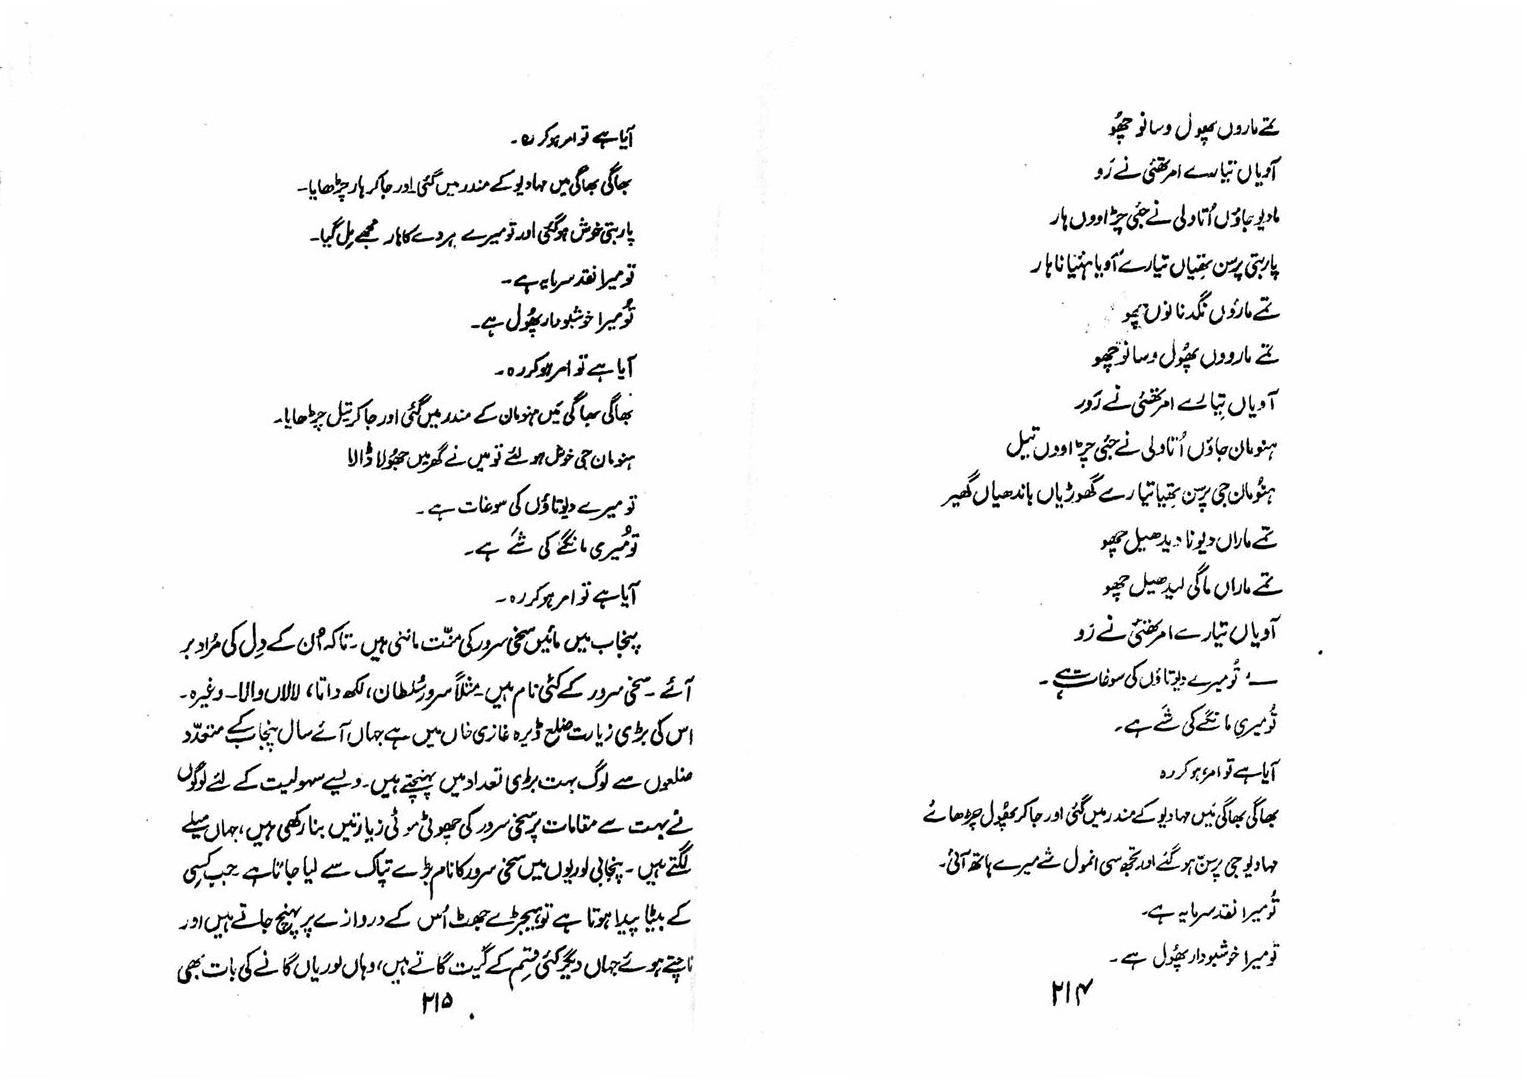 تمے ماروں پھول وسانو چھو
آویاں تیارے امر تھئی نے رَو
مادیو جاؤں اُتاولی نے جئی چڑاووں ہار
پاربتی پرسن تھیاں تیارے آویا ہئیانا ہار
تمے ماروں نگد نانوں چھو
تمے مارووں پھُول وسانو چھو
آویاں تیارے امر تھئی نے رَور
ہنومان جاؤں اُتاولی نے جئی چڑاووں تیل
ہنُومان جی پرسن تھیا تیارے گھوڑیاں باندھیاں گھیر
تمے ماراں دیونا دیدھیل چھو
تمے ماراں ماگی لیدھیل چھو
آویاں تیارے امر تھئی نے رَو
— تُو میرے دیوتاؤں کی سوغات ہے۔
تُو میری مانگے کی شَے ہے۔
آیا ہے تو امر ہو کر رہ
بھاگی بھاگی مَیں مہادیو کے مندر میں گئی اور جا کر پھُول چڑھائے
مہادیو جی پرسن ہو گئے اور تجھ سی انمول شے میرے ہاتھ آئی۔
تُو میرا نقد سرمایہ ہے۔
تو میرا خوشبودار پھُول ہے۔
۲۱۴
آیا ہے تو امر ہو کر رہ۔
بھاگی بھاگی میں مہادیو کے مندر میں گئی اور جا کر ہار چڑھایا۔
پاربتی خوش ہو گئی اور تو میرے ہردے کا ہار مجھے مِل گیا۔
تو میرا نقد سرمایہ ہے۔
تُو میرا خوشبودار پھُول ہے۔
آیا ہے تو امر ہو کر رہ۔
بھاگی بھاگی مَیں ہنومان کے مندر میں گئی اور جا کر تیل چڑھایا۔
ہنومان جی خوش ہوئے تو میں نے گھر میں جھُولا ڈالا
تو میرے دیوتاؤں کی سوغات ہے۔
تُو میری مانگے کی شَے ہے۔
آیا ہے تو امر ہو کر رہ۔
پنجاب میں مائیں سخی سرور کی منّت مانتی ہیں۔ تاکہ اُن کے دِل کی مُراد بر
آئے۔ سخی سرور کے کئی نام ہیں۔ مثلاً سرور سُلطان، لکھ داتا، لالاں والا۔ وغیرہ۔
اس کی بڑی زیارت ضلع ڈیرہ غازی خاں میں ہے جہاں آئے سال پنجاب کے متعدّد
ضلعوں سے لوگ بہت بڑی تعداد میں پہنچتے ہیں۔ ویسے سہولیت کے لئے لوگوں
نے بہت سے مقامات پر سخی سرور کی چھوٹی موٹی زیارتیں بنا رکھی ہیں، جہاں میلے
لگتے ہیں۔ پنجابی لوریوں میں سخی سرور کا نام بڑے تپاک سے لیا جاتا ہے جب کسی
کے بیٹا پیدا ہوتا ہے تو ہیجڑے جھٹ اُس کے دروازے پر پہنچ جاتے ہیں اور
ناچتے ہوئے جہاں دیگر کئی قسم کے گیت گاتے ہیں، وہاں لوریاں گانے کی بات بھی
۲۱۵